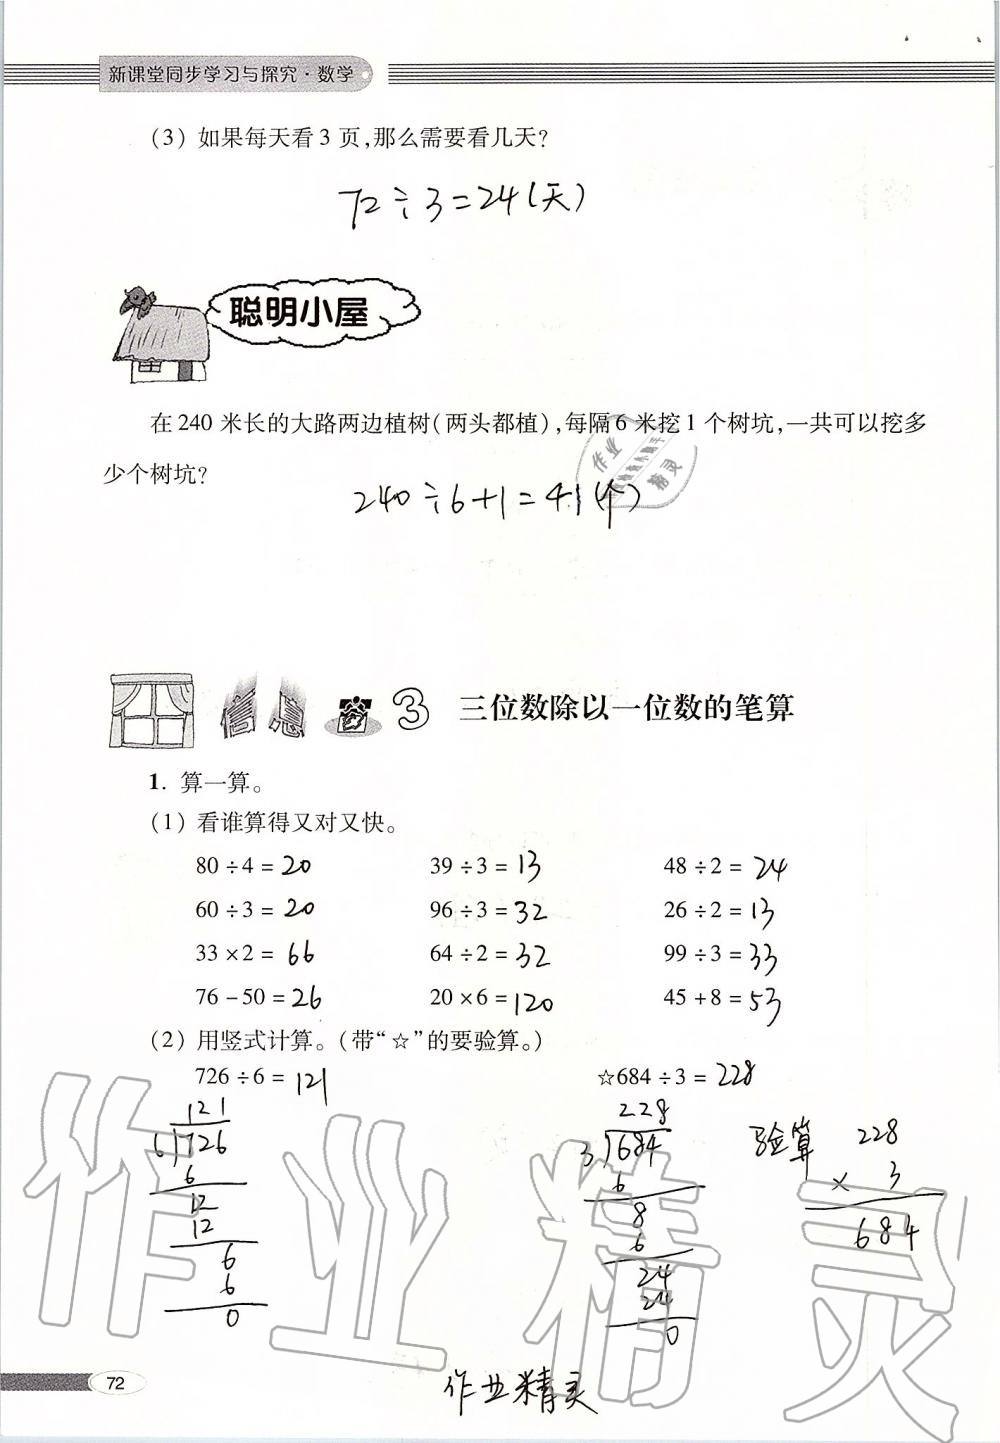 新课堂同步学习与探究·数学
(3) 如果每天看 3 页,那么需要看几天?
72÷3=24(天)
聪明小屋
在 240 米长的大路两边植树(两头都植),每隔 6 米挖 1 个树坑,一共可以挖多
少个树坑?
240÷6+1=41(个)
信息窗 3 三位数除以一位数的笔算
1. 算一算。
(1) 看谁算得又对又快。
80÷4=20 39÷3=13 48÷2=24
60÷3=20 96÷3=32 26÷2=13
33×2=66 64÷2=32 99÷3=33
76-50=26 20×6=120 45+8=53
(2) 用竖式计算。(带“☆”的要验算。)
726÷6=121 ☆684÷3=228
121 228
6)726 3)684 验算 228
6 6 × 3
12 8 684
12 6
6 24
6 24
0 0
72
作业精灵
作业精灵